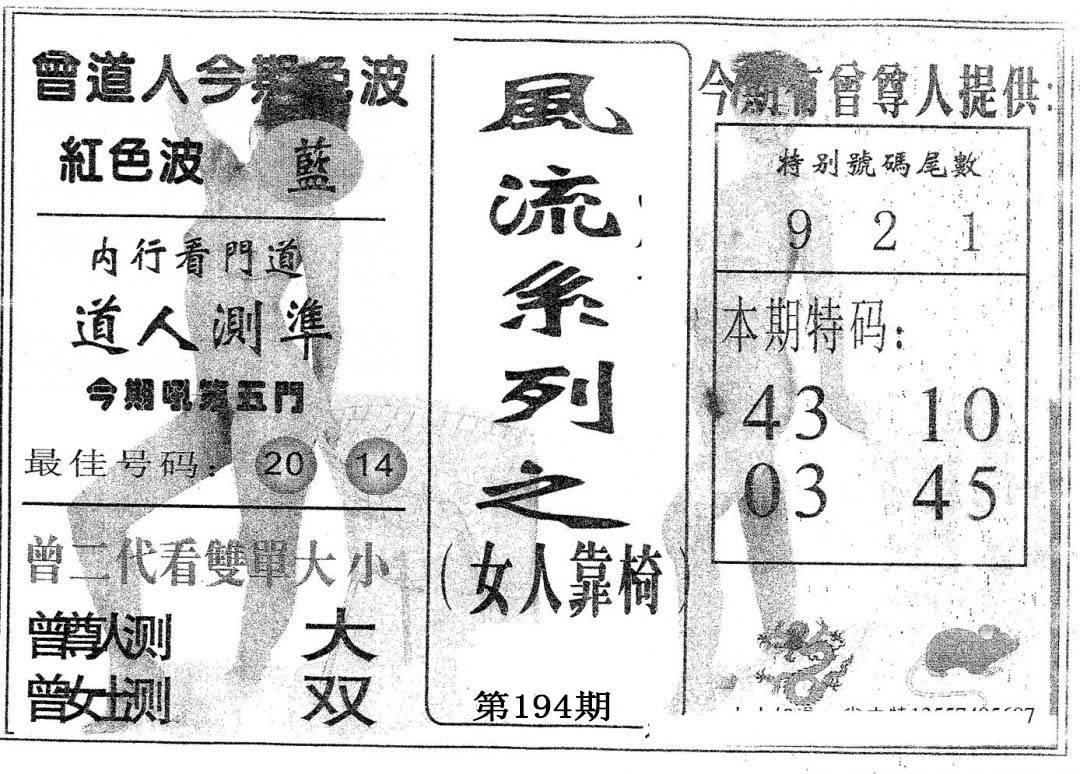 曾道人今期色波
紅色波 藍
内行看門道
道人測準
今期吼第五門
最佳号码： 20 14
曾二代看雙單大小
曾尊人测 大
曾女士测 双
風流系列之
（女人靠椅）
第194期
今期有曾尊人提供：
特别號碼尾數
9 2 1
本期特码：
43 10
03 45